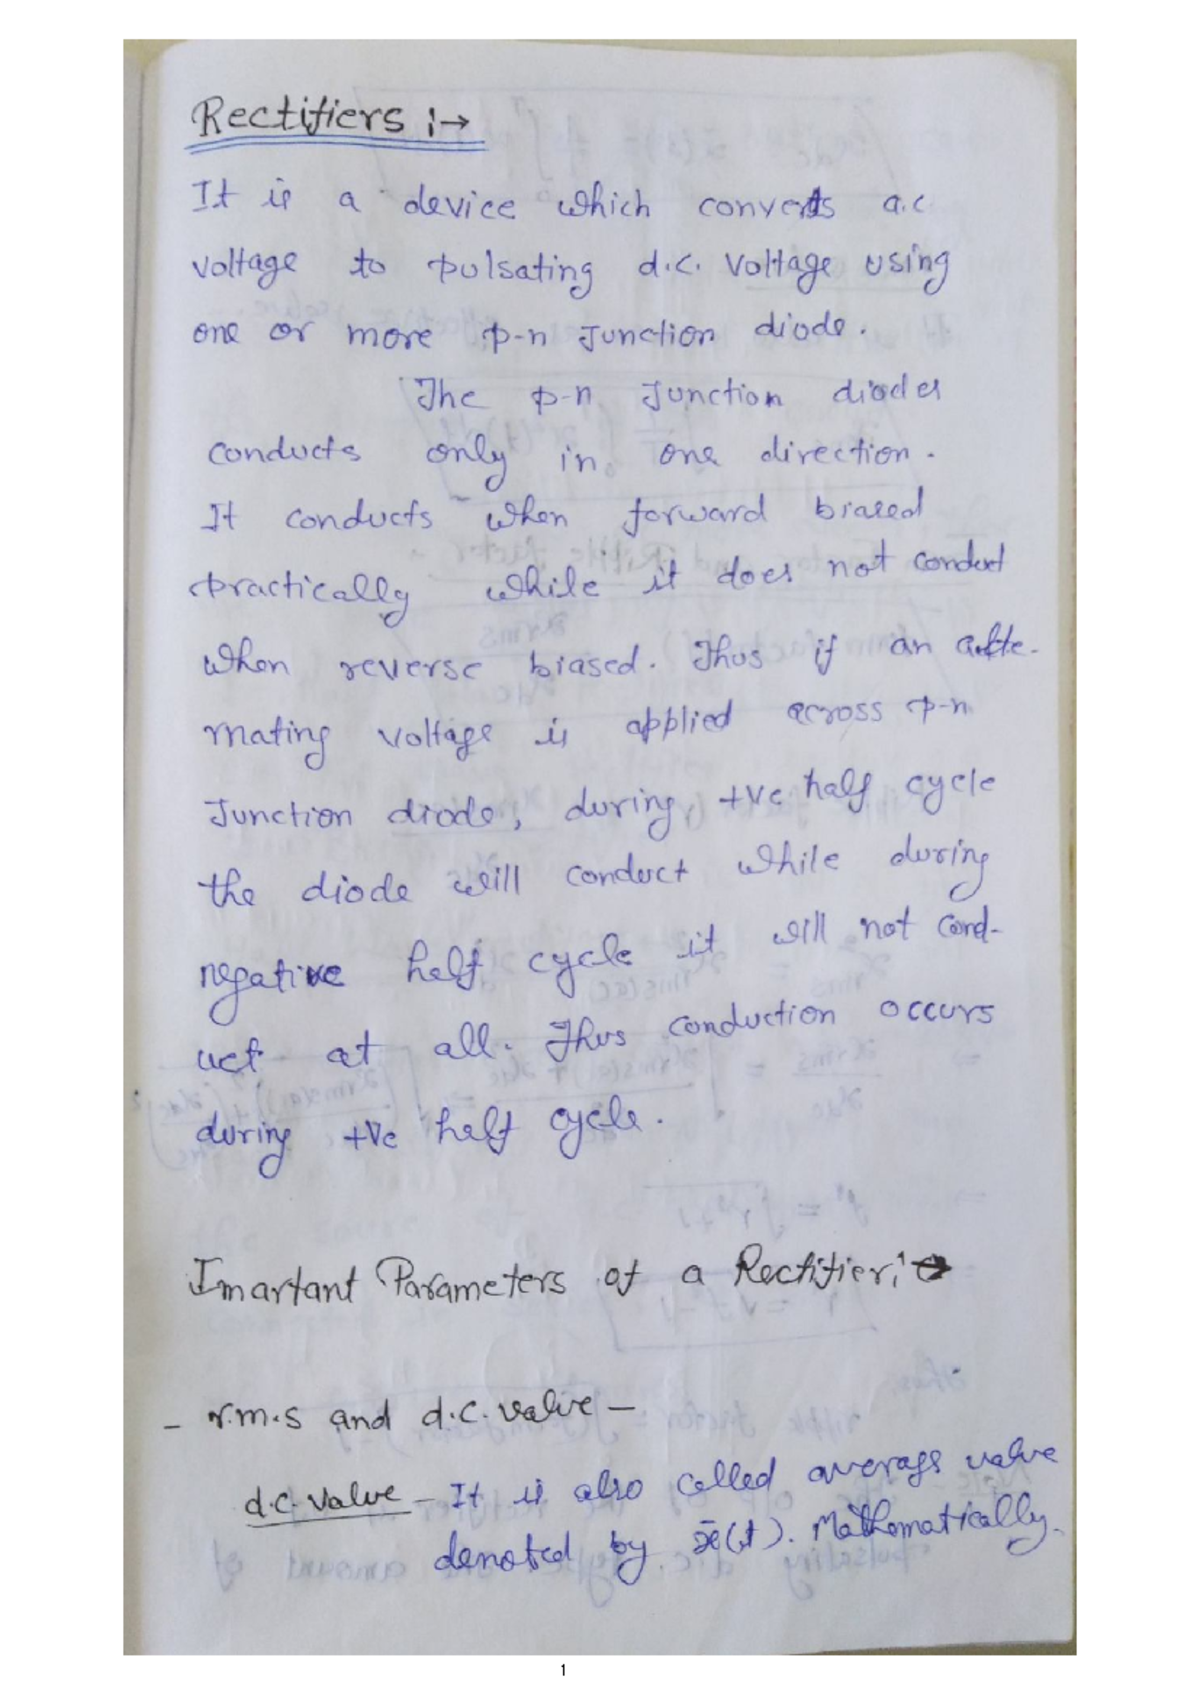 Rectifiers :→
It is a device which converts a.c
voltage to pulsating d.c. voltage using
one or more p-n Junction diode.
The p-n Junction diodes
conducts only in one direction.
It conducts when forward biased
practically while it does not conduct
when reverse biased. Thus if an alte-
rnating voltage is applied across p-n
Junction diode, during +ve half cycle
the diode will conduct while during
negative half cycle it will not cond-
uct at all. Thus conduction occurs
during +ve half cycle.
Imartant Parameters of a Rectifier:→
- r.m.s and d.c. valve -
d.c. valve - It is also called average valve
denoted by x̄(t). Mathematically.
1